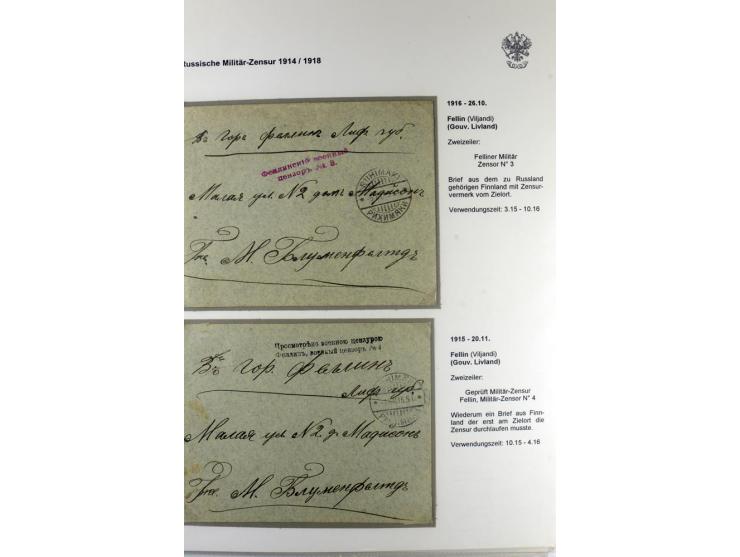 Russische Militär-Zensur 1914 / 1918
1916 - 26.10.
Fellin (Viljandi)
(Gouv. Livland)
Zweizeiler:
Felliner Militär
Zensor N° 3
Brief aus dem zu Russland
gehörigen Finnland mit Zensur-
vermerk vom Zielort.
Verwendungszeit: 3.15 - 10.16
Въ гор. Феллинъ Лифл. губ.
Феллинскій военный
цензоръ № 3.
РИХИМЯКИ
Малая ул. №2 домъ Мадисонъ
М. Блуменфельтдъ
1915 - 20.11.
Fellin (Viljandi)
(Gouv. Livland)
Zweizeiler:
Geprüft Militär-Zensur
Fellin, Militär-Zensor N° 4
Wiederum ein Brief aus Finn-
land der erst am Zielort die
Zensur durchlaufen musste.
Verwendungszeit: 10.15 - 4.16
Просмотрѣно военною цензурою
Феллинъ, военный цензоръ № 4
Въ гор. Феллинъ
Лифл. губ.
Малая ул №2 д. Мадисонъ
М. Блуменфельтдъ